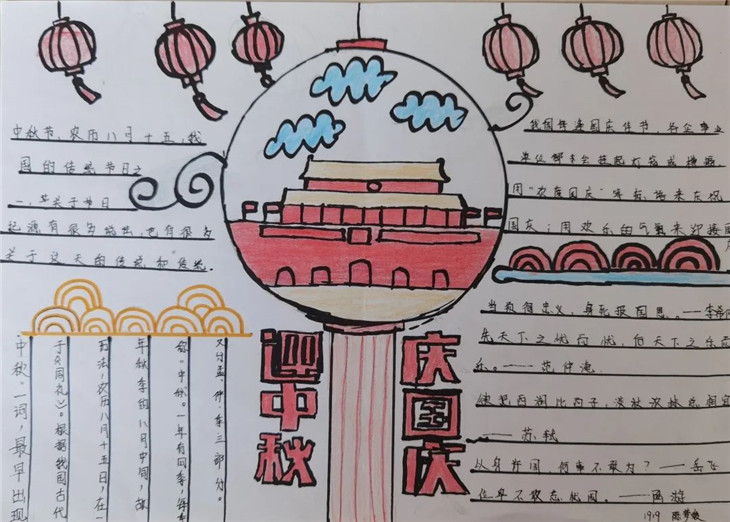 中秋节、农历八月十五,我
国的传统节日之
一,
起源有很多说法,也有很多
关于这天的传说和传统。
中秋一词,最早出现
于《周礼》。根据我国古代
历法,农历八月十五日,在一
年秋季的八月中旬,故
称"中秋"。一年有四季,每季
又分孟、仲、季三部分。
迎中秋
庆国庆
我国每逢国庆佳节,各企事业
单位都不会挂起灯笼或横幅,
用"欢度国庆"等标
国庆;用欢乐的气氛来迎接
身死报国恩。——李希仲
先天下之忧而忧,后天下之乐而
乐。——范仲淹
欲把西湖比西子,淡妆浓抹总相宜
——苏轼
从来许国,何事不敢为?——岳飞
位卑不敢忘忧国。——陆游
1919